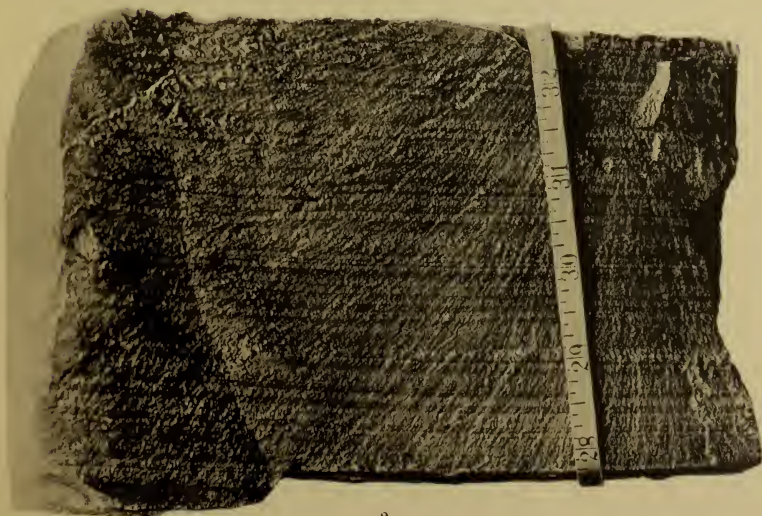 32
31
30
29
28
a